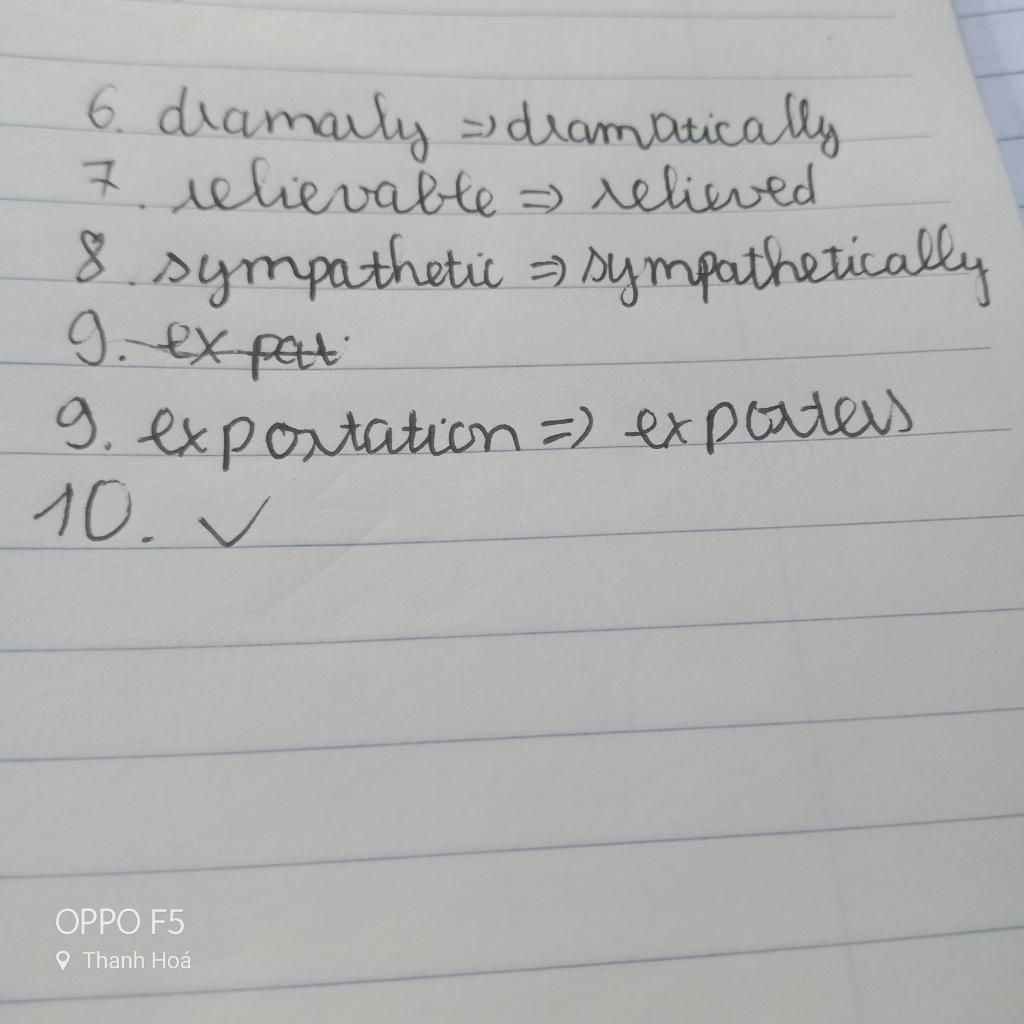 6. dramarly => dramatically
7. relievable => relieved
8. sympathetic => sympathetically
9. expat
9. exportation => exporters
10. ✓
OPPO F5
Thanh Hoá